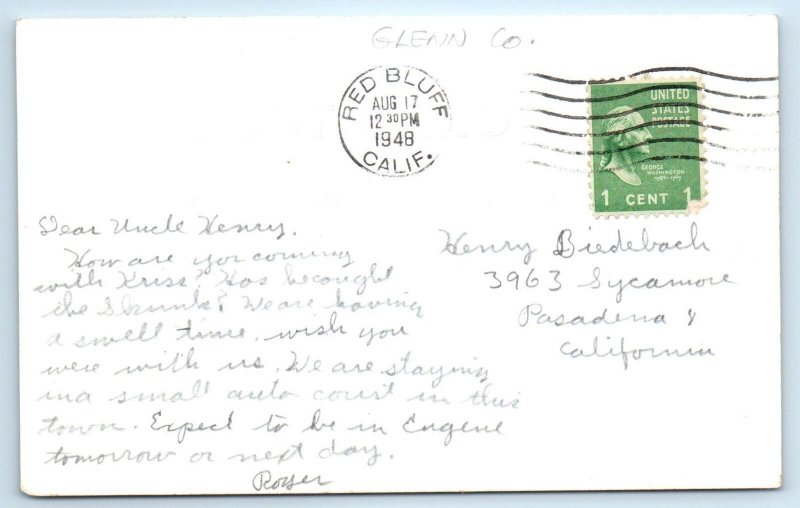 GLENN CO.
RED BLUFF
AUG 17
12 30 PM
1948
CALIF.
UNITED
STATES
POSTAGE
GEORGE
WASHINGTON
1789-1797
1 CENT 1
Dear Uncle Henry.
How are you coming
with Kriss? Has he cought
the Skunk? We are having
a swell time, wish you
were with us. We are staying
in a small auto court in this
town. Expect to be in Eugene
tomorrow or next day.
Roger
Henry Biedebach
3963 Sycamore
Pasadena 8
California